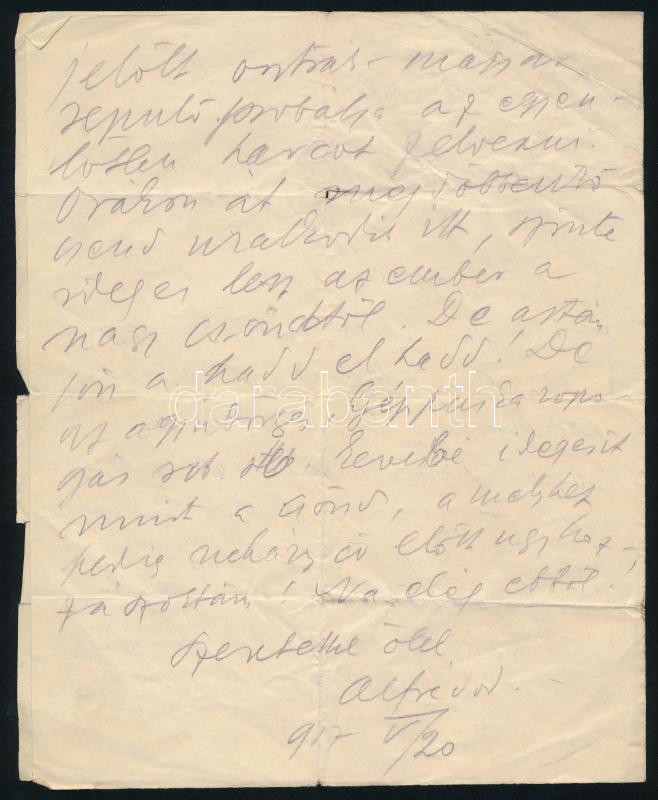 jelölt osztrák-magyar
repülő próbálja az egyen-
lőtlen harcot felvenni.
Órákon át megdöbbentő
csend uralkodik itt, szinte
ideges lesz az ember a
nagy csöndtől. De aztán
jön a hadd el hadd! De
az ágyúbőgés Géppuska ropo-
gás stb stb. Kevésbé idegesít
mint a csönd, amelyhez
pedig néhány év előtt úgy hoz-
zászoktam! Na elég ebből!
Szeretettel ölel
Alfrédod.
917 V/20
darabanth